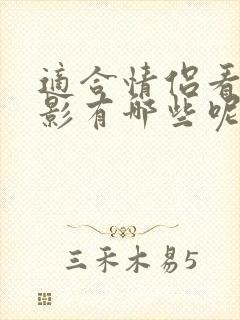 適合情侶看
影有哪些呢
三禾木易5